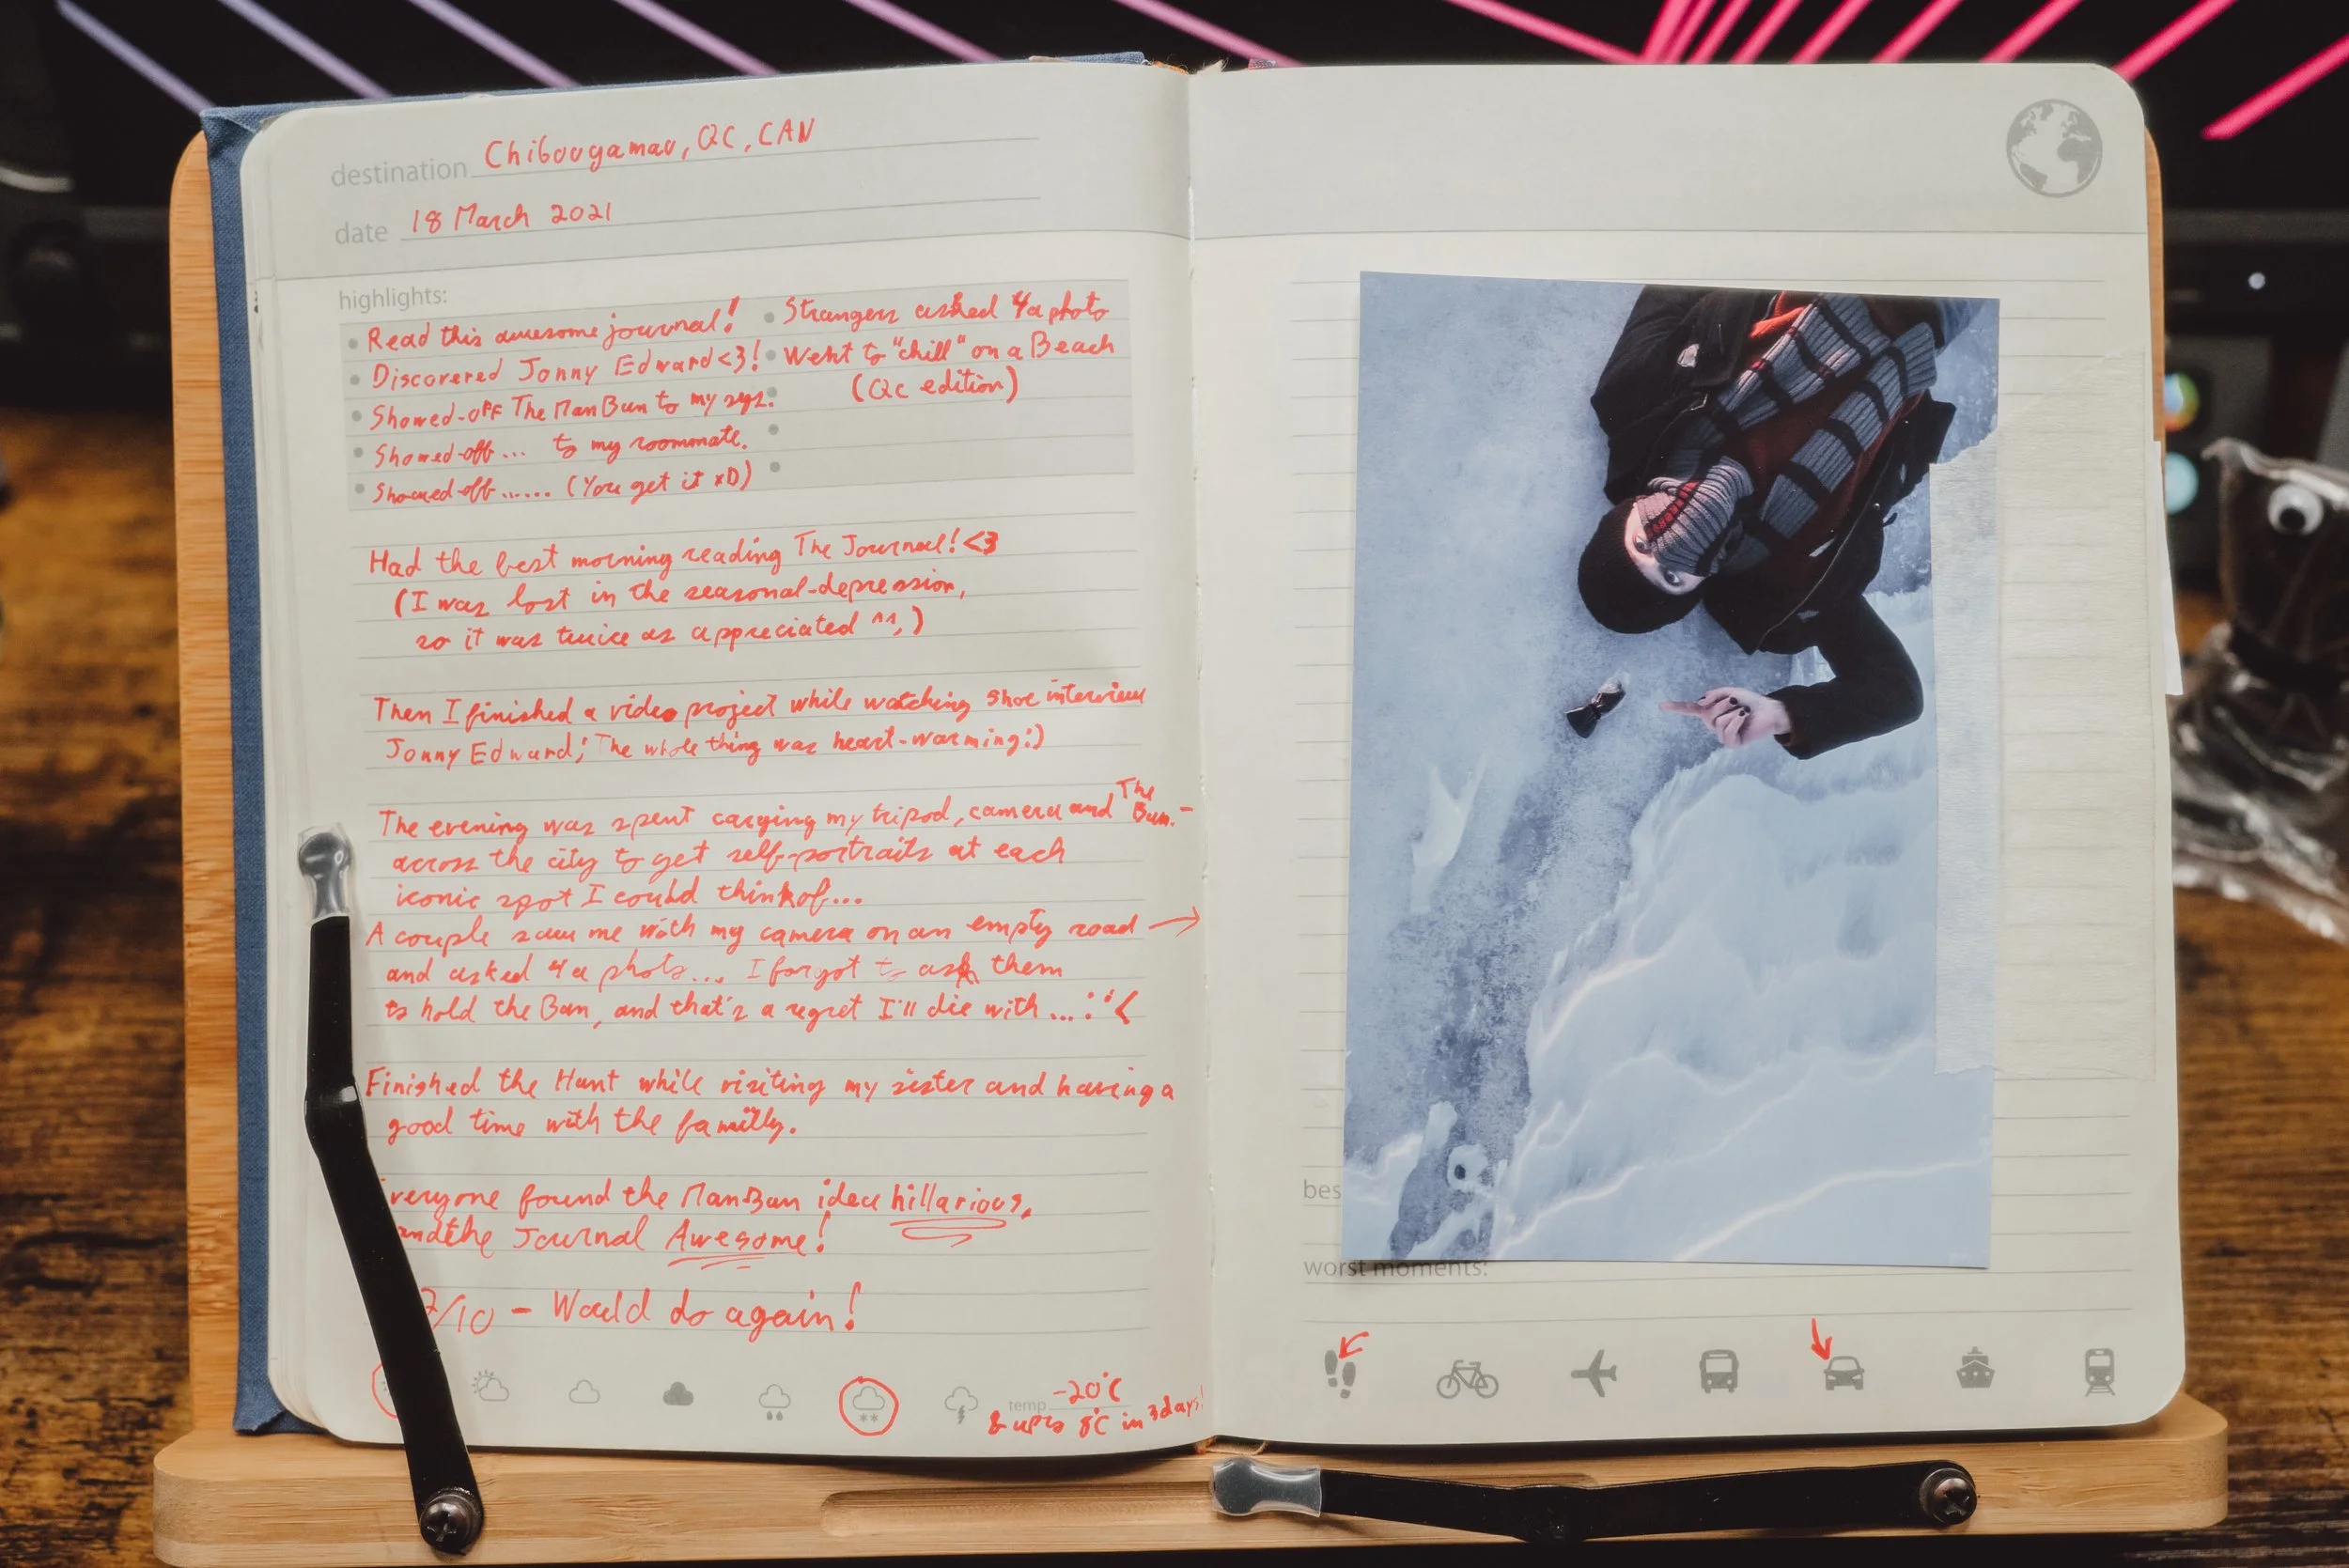 destination Chibougamau, QC, CAN
date 18 March 2021
highlights:
• Read this awesome journal!
• Discovered Jonny Edward <3!
• Showed-off The ManBun to my sys.
• Showed-off... to my roommate.
• Showed-off...... (You get it xD)
• Strangers asked 4a photo
• Went to "chill" on a Beach
(Qc edition)
Had the best morning reading The Journal! <3
(I was lost in the seasonal-depression,
so it was twice as appreciated ^^,)
Then I finished a video project while watching Shoe interview
Jonny Edward; The whole thing was heart-warming :)
The evening was spent carrying my tripod, camera and The Bun.-
across the city to get self-portraits at each
iconic spot I could think of...
A couple saw me with my camera on an empty road →
and asked 4a photo... I forgot to ask them
to hold the Bun, and that's a regret I'll die with... :'<
Finished the Hunt while visiting my sister and having a
good time with the familly.
veryone found the ManBun idea hillarious,
and the Journal Awesome!
/10 - Would do again!
temp -20°C
& up to 8°C in 3 days!
bes
worst moments: